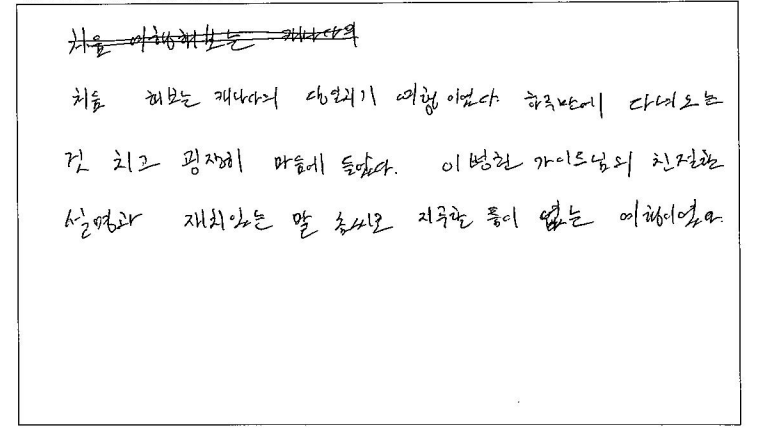 처음 여행해보는 캐나다의
처음 해보는 캐나다의 당일치기 여행이었다. 하루만에 다녀오는
것 치고 굉장히 마음에 들었다. 이병헌 가이드님의 친절한
설명과 재치있는 말 솜씨로 지루할 틈이 없는 여행이었다.